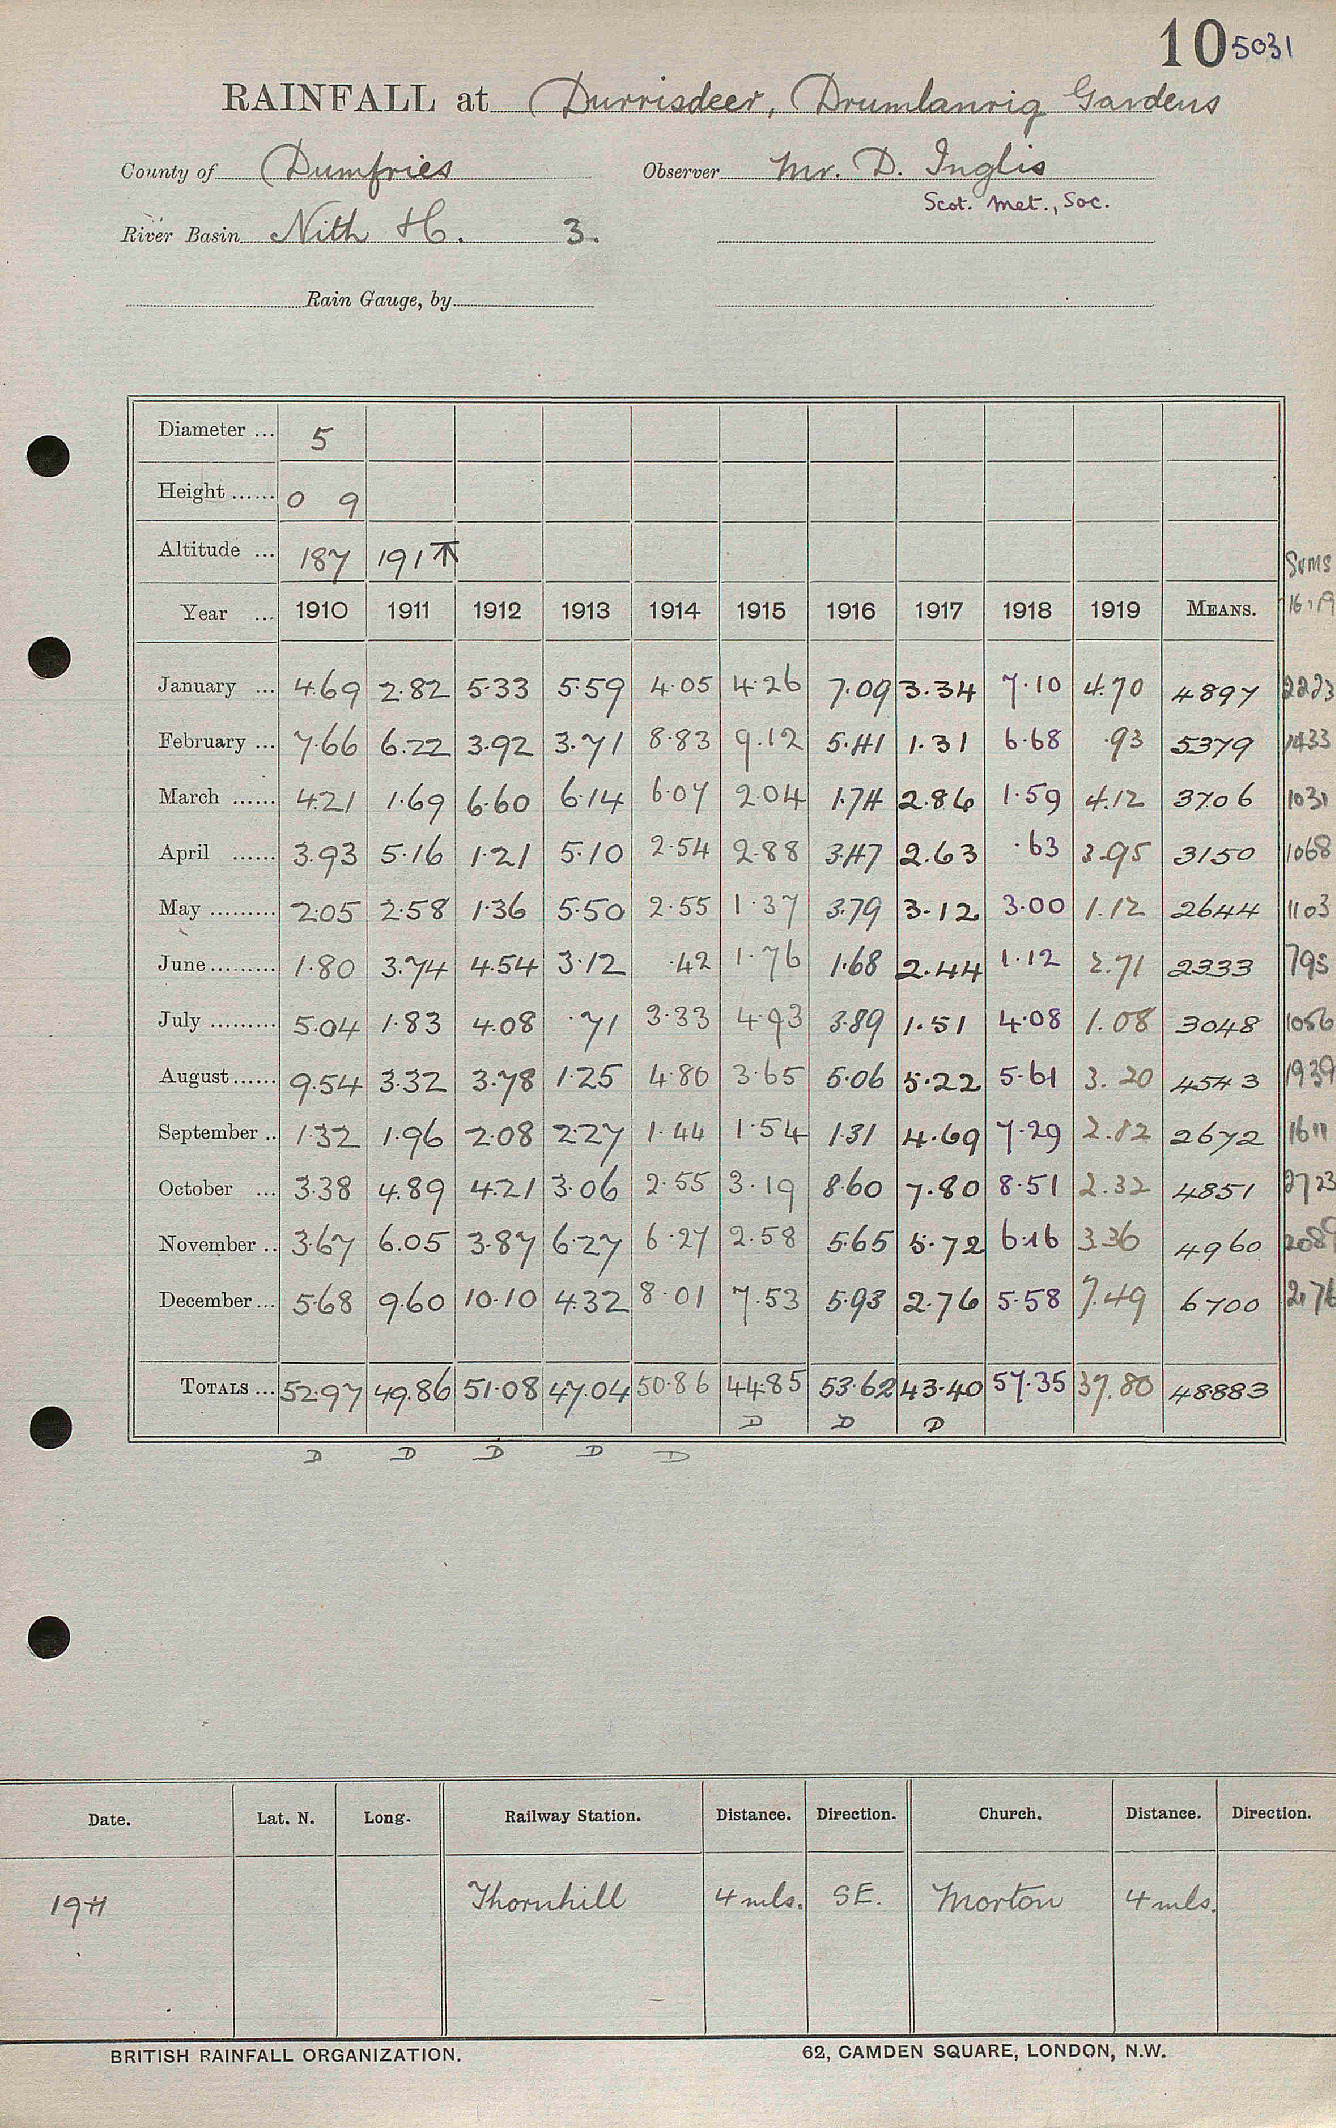 10 5031
RAINFALL at Durrisdeer, Drumlanrig Gardens
County of Dumfries Observer Mr. D. Inglis
Scot. Met., Soc.
River Basin Nith H. 3.
Rain Gauge, by
Diameter ... 5
Height ...... 0 9
Altitude ... 187 191 ↑
Sums
Year ... 1910 1911 1912 1913 1914 1915 1916 1917 1918 1919 MEANS. 16-19
January ... 4.69 2.82 5.33 5.59 4.05 4.26 7.09 3.34 7.10 4.70 4897 2223
February ... 7.66 6.22 3.92 3.71 8.83 9.12 5.41 1.31 6.68 .93 5379 1433
March ...... 4.21 1.69 6.60 6.14 6.07 2.04 1.74 2.86 1.59 4.12 3706 1031
April ...... 3.93 5.16 1.21 5.10 2.54 2.88 3.47 2.63 .63 3.95 3150 1068
May ......... 2.05 2.58 1.36 5.50 2.55 1.37 3.79 3.12 3.00 1.12 2644 1103
June......... 1.80 3.74 4.54 3.12 .42 1.76 1.68 2.44 1.12 2.71 2333 795
July ......... 5.04 1.83 4.08 .71 3.33 4.93 3.89 1.51 4.08 1.08 3048 1056
August...... 9.54 3.32 3.78 1.25 4.80 3.65 5.06 5.22 5.61 3.20 4543 1939
September .. 1.32 1.96 2.08 2.27 1.44 1.54 1.31 4.69 7.29 2.82 2672 1611
October ... 3.38 4.89 4.21 3.06 2.55 3.19 8.60 7.80 8.51 2.32 4851 2723
November .. 3.67 6.05 3.87 6.27 6.27 2.58 5.65 5.72 6.16 3.36 4960 2089
December... 5.68 9.60 10.10 4.32 8.01 7.53 5.93 2.76 5.58 7.49 6700 2176
TOTALS ... 52.97 49.86 51.08 47.04 50.86 44.85 53.62 43.40 57.35 37.80 48883
D D D
D D D D D
Date. Lat. N. Long. Railway Station. Distance. Direction. Church. Distance. Direction.
1911 Thornhill 4 mls. SE. Morton 4 mls.
BRITISH RAINFALL ORGANIZATION. 62, CAMDEN SQUARE, LONDON, N.W.